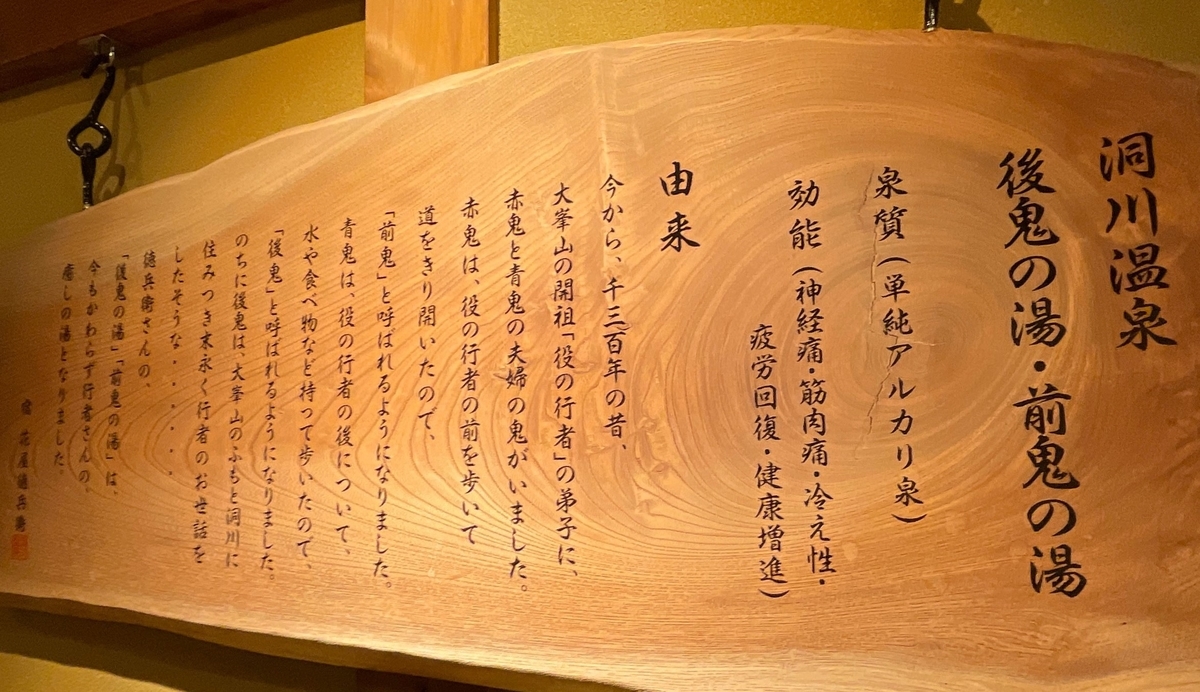 洞川温泉
後鬼の湯・前鬼の湯
泉質(単純アルカリ泉)
効能(神経痛・筋肉痛・冷え性・
疲労回復・健康増進)
由来
今から、千三百年の昔、
大峯山の開祖「役の行者」の弟子に、
赤鬼と青鬼の夫婦の鬼がいました。
赤鬼は、役の行者の前を歩いて
道をきり開いたので、
「前鬼」と呼ばれるようになりました。
青鬼は、役の行者の後について、
水や食べ物など持って歩いたので、
「後鬼」と呼ばれるようになりました。
のちに後鬼は、大峯山のふもと洞川に
住みつき末永く行者のお世話を
したそうな・・・・・
徳兵衛さんの、
「後鬼の湯」「前鬼の湯」は、
今もかわらず行者さんの、
癒しの湯となりました。
花屋徳兵衛